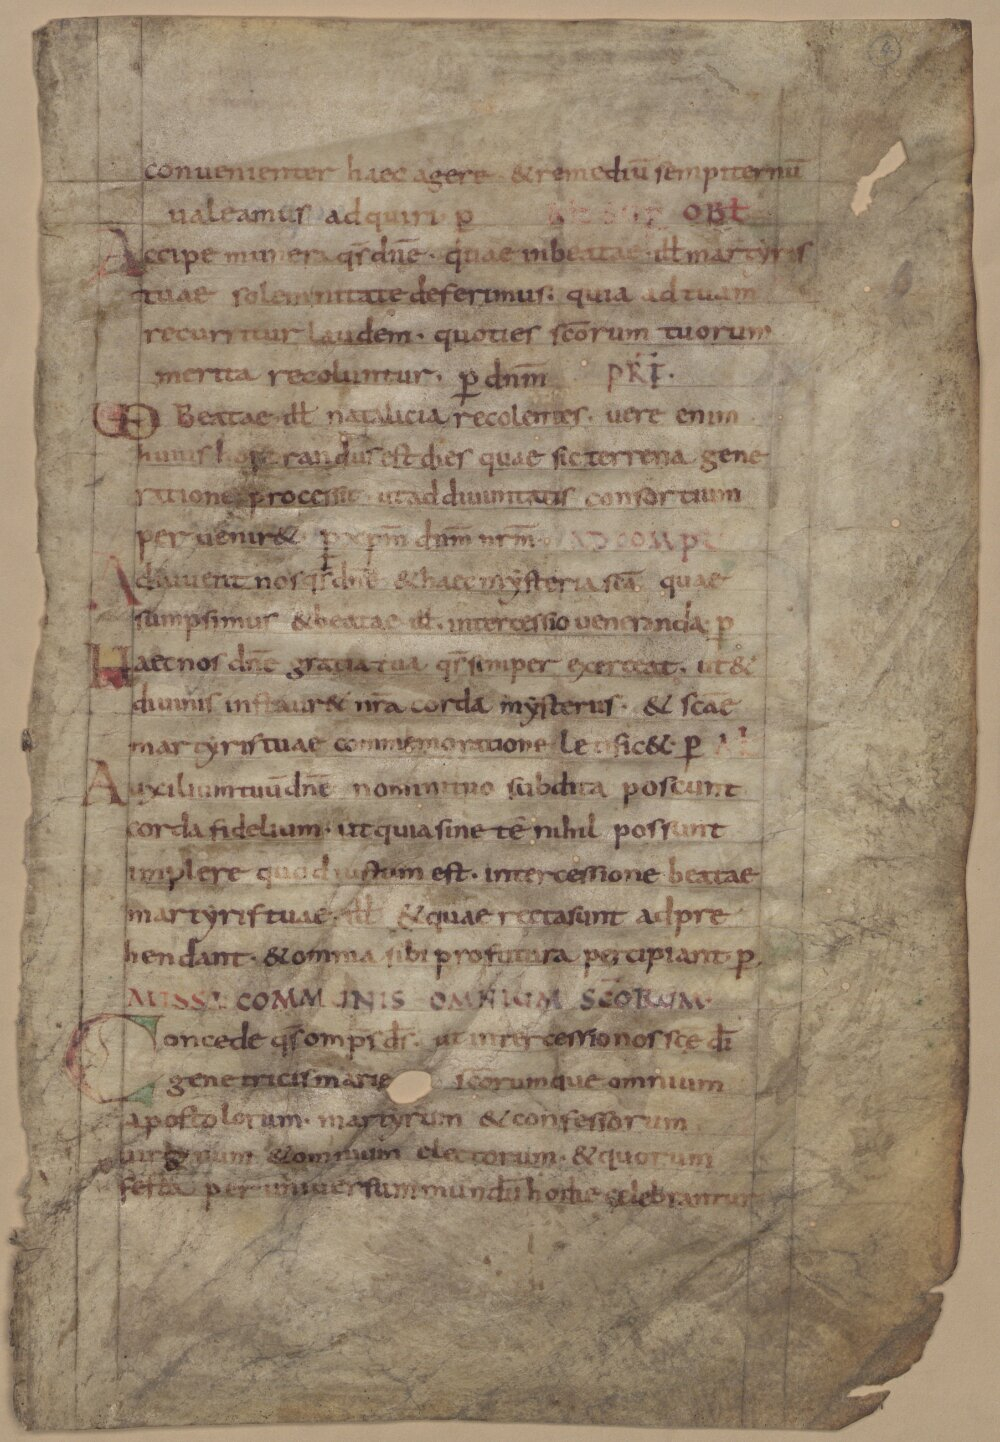 conuenienter haec agere & remediū sempiternū
ualeamus adquiri· p̄ SUPER OBł
Accipe munera qs̄ dnē· quae in beatae· ilł martyris
tuae solemnitate deferimus· quia ad tuam
recurritur laudem· quoties sc̄orum tuorum
merita recoluntur· p̄ dnm̄ PRĒF·
UD Beatae· ilł natalicia recolentes· uere enim
huius honorandus est dies quae sic terrena gene
ratione processit· ut ad diuinitatis consortium
peruenir&· p̄ xp̄m dnm̄ nrm̄· AD COMPL
Adiuuent nos qs̄ dnē & haec mysteria sc̄a quae
sumpsimus & beatae· ilł· intercessio ueneranda· p̄
Haec nos dnē gratia tua qs̄ semper exerceat· ut &
diuinis instaur& nrā corda mysteriis· & sc̄ae
martyris tuae commemoratione letific&· p̄ AŁ
Auxilium tuū dnē nomini tuo subdita poscunt
corda fidelium· ut quia sine te nihil possunt
implere quod iustum est· intercessione beatae
martyris tuae· ilł & quae recta sunt adpre
hendant· & omnia sibi profutura percipiant· p̄
MISSA COMMUNIS OMNIUM SC̄ORUM·
Concede qs̄ omps̄ ds̄· ut intercessio nos sc̄e dī
genetricis marie sc̄orumque omnium
apostolorum· martyrum & confessorum
uirginum & omnium electorum· & quorum
festa per uniuersum mundū hodie celebrantur